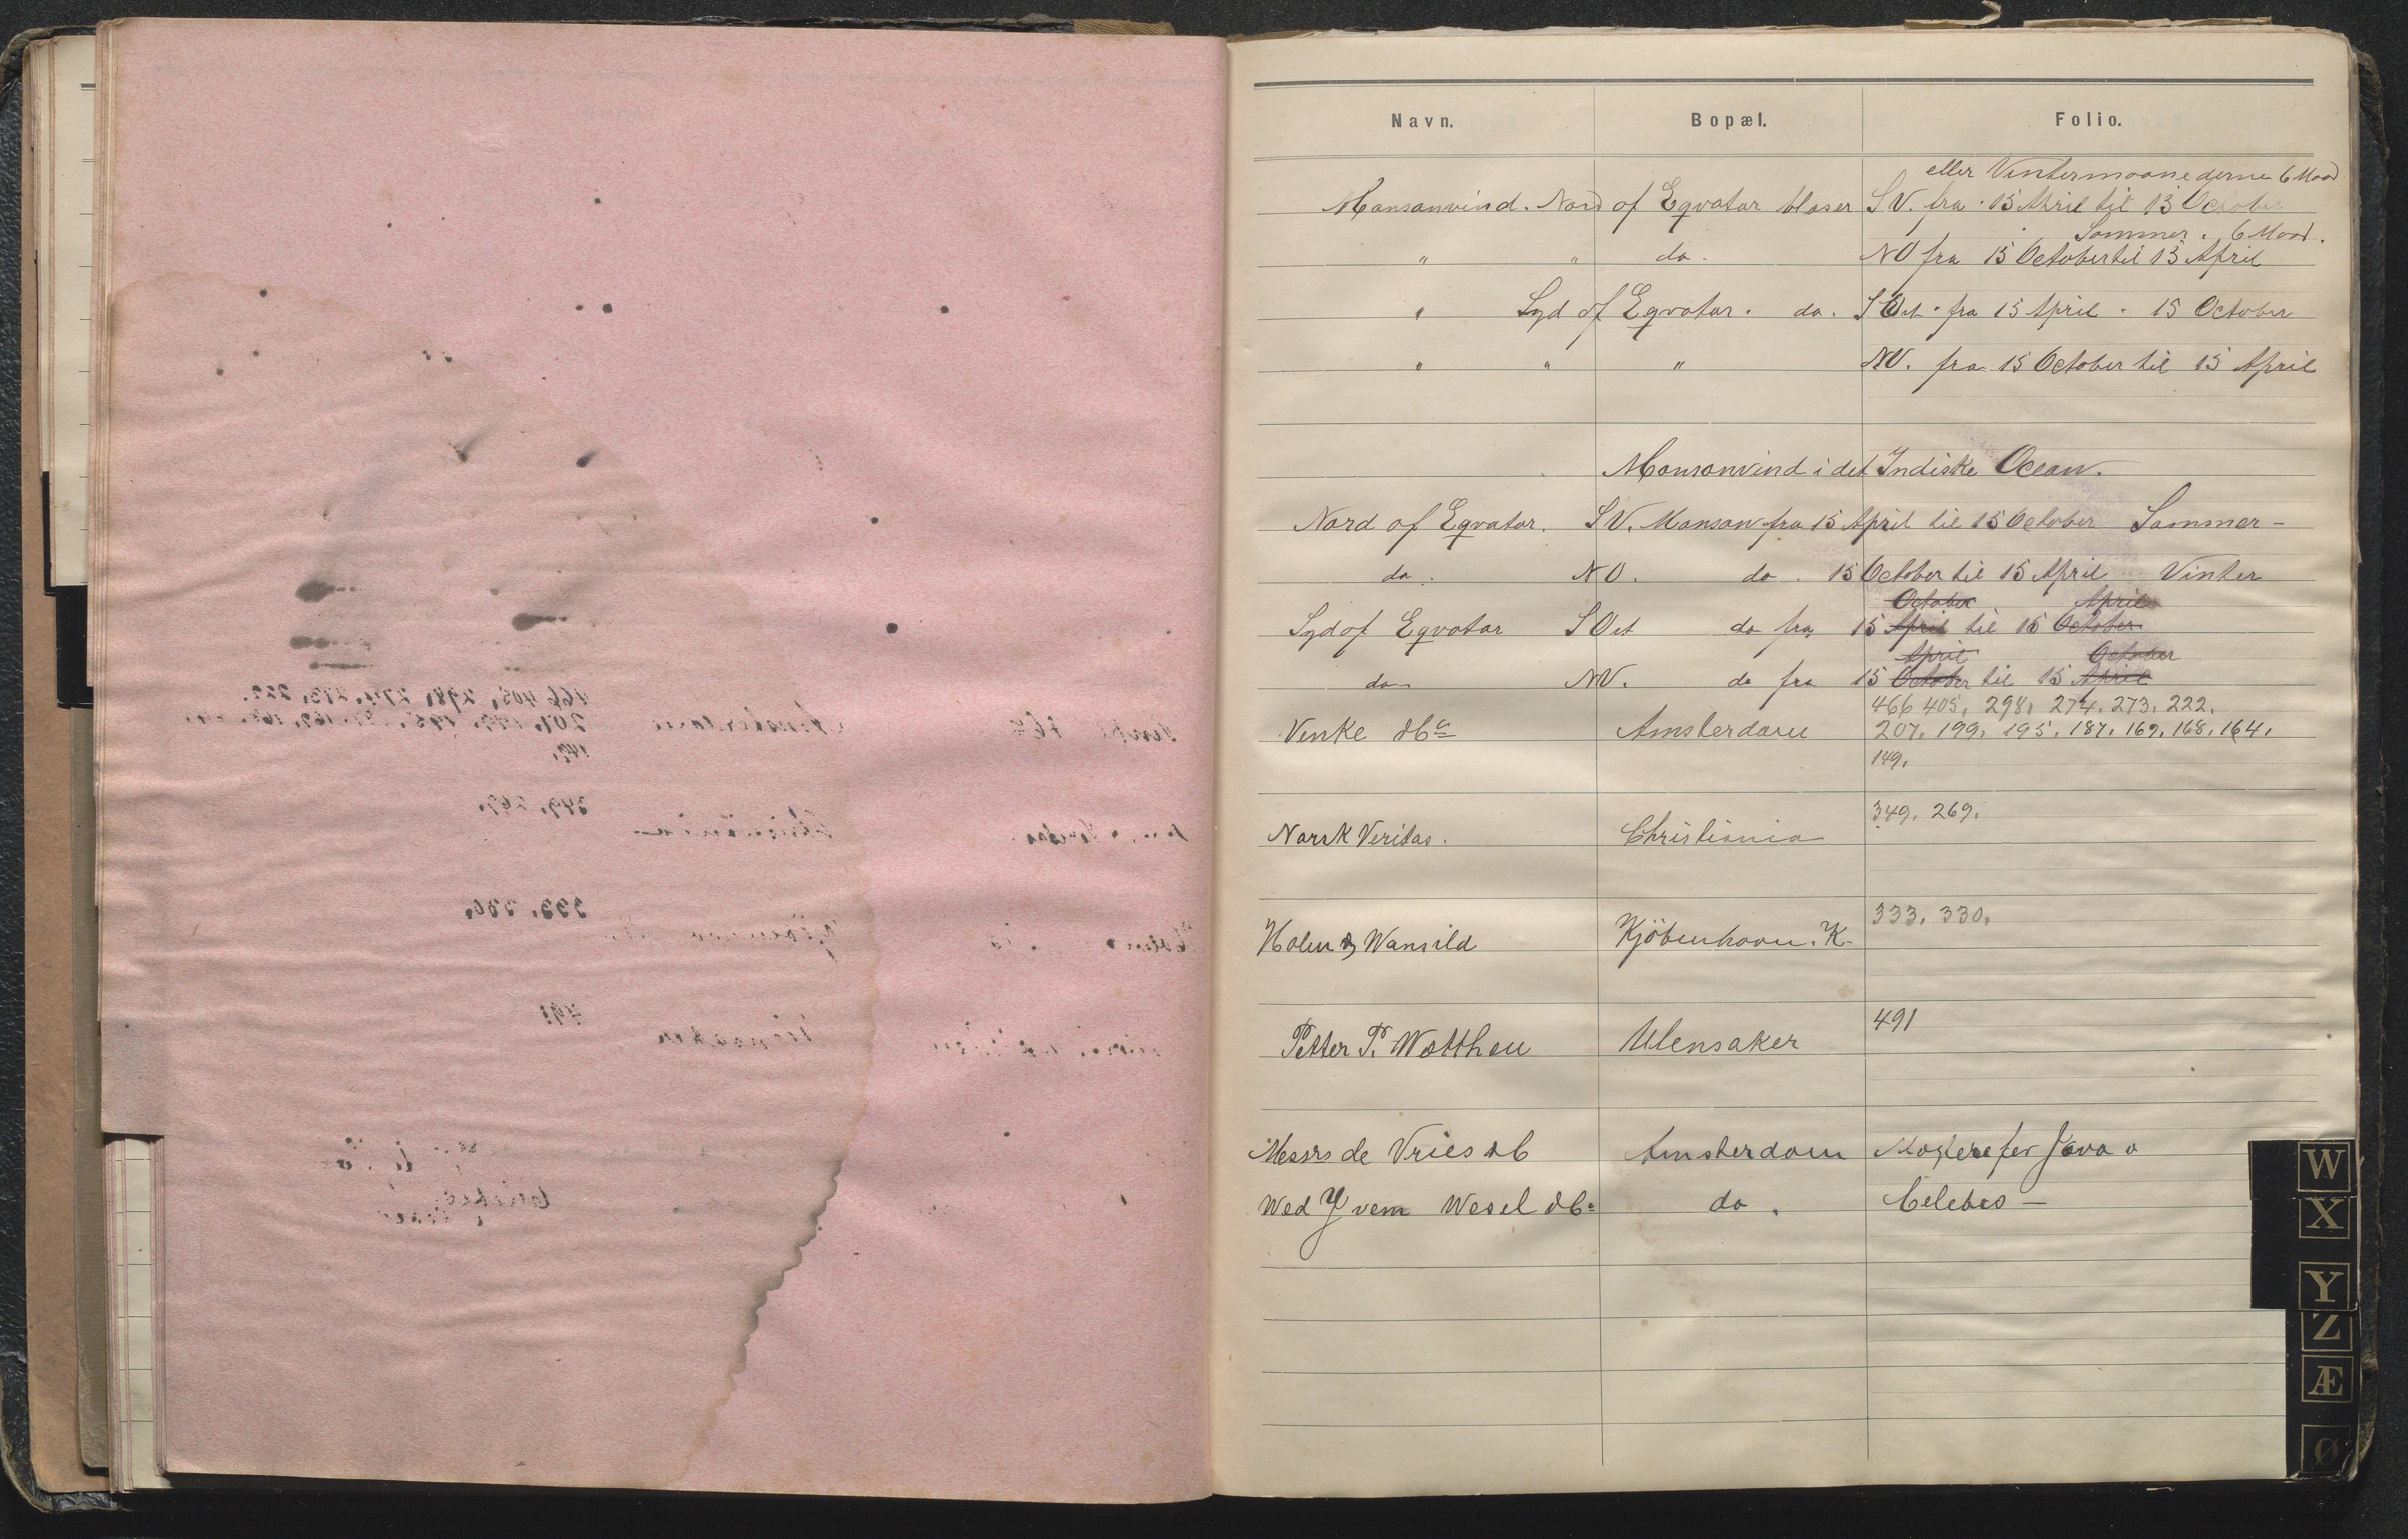 Navn. Bopæl. Folio.
eller Vintermaanederne 6 Maad
Monsonvind. Nord of Eqvator blaser SV. fra 15 April til 15 October
Sommer. 6 Maad.
" " do. NO fra 15 October til 15 April
" Syd of Eqvator. do. S Ost. fra 15 April. 15 October
" " " NV. fra 15 October til 15 April
Monsonvind i det Indiske Ocean.
Nord of Eqvator. SV. Monson fra 15 April til 15 October Sommer-
do. NO. do. 15 October til 15 April Vinter
October April
Syd of Eqvator S Ost do fra 15 April til 15 October
April October
do NV. do fra 15 October til 15 April
466 405, 298, 274, 273, 222,
Venke & Co Amsterdam 207, 199, 195, 187, 169, 168, 164,
149,
349, 269,
Norsk Veritas. Christiania
333, 330,
Holm & Wansild Kjöbenhavn. K-
491
Petter P. Wotthen Ulensaker
Messrs de Vries & C Amsterdam Java o
Wed Y vem Wesel & Co do. Celebes —
W
X
Y
Z
Æ
Ø